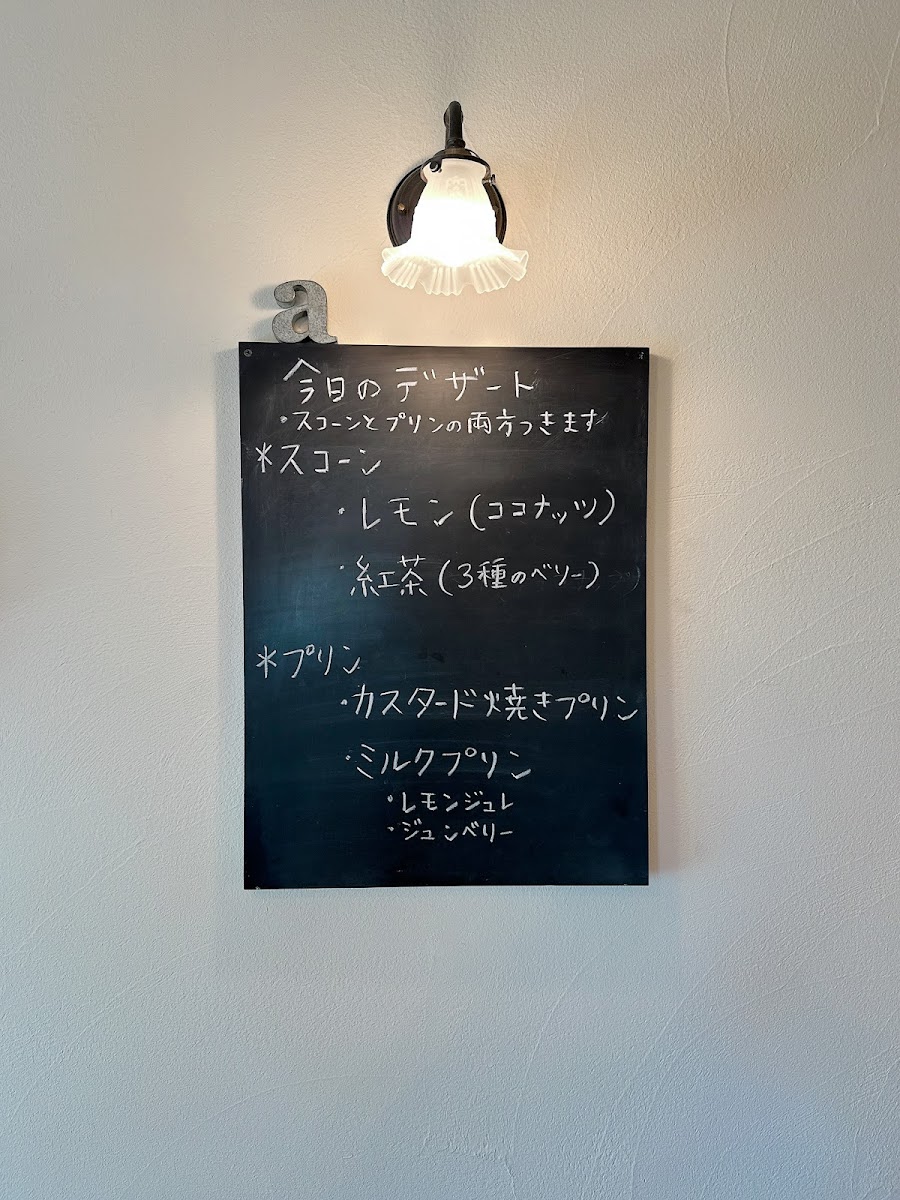 a
今日のデザート
・スコーンとプリンの両方つきます
*スコーン
・レモン(ココナッツ)
・紅茶(3種のベリー)
*プリン
・カスタード焼きプリン
・ミルクプリン
・レモンジュレ
・ジュンベリー